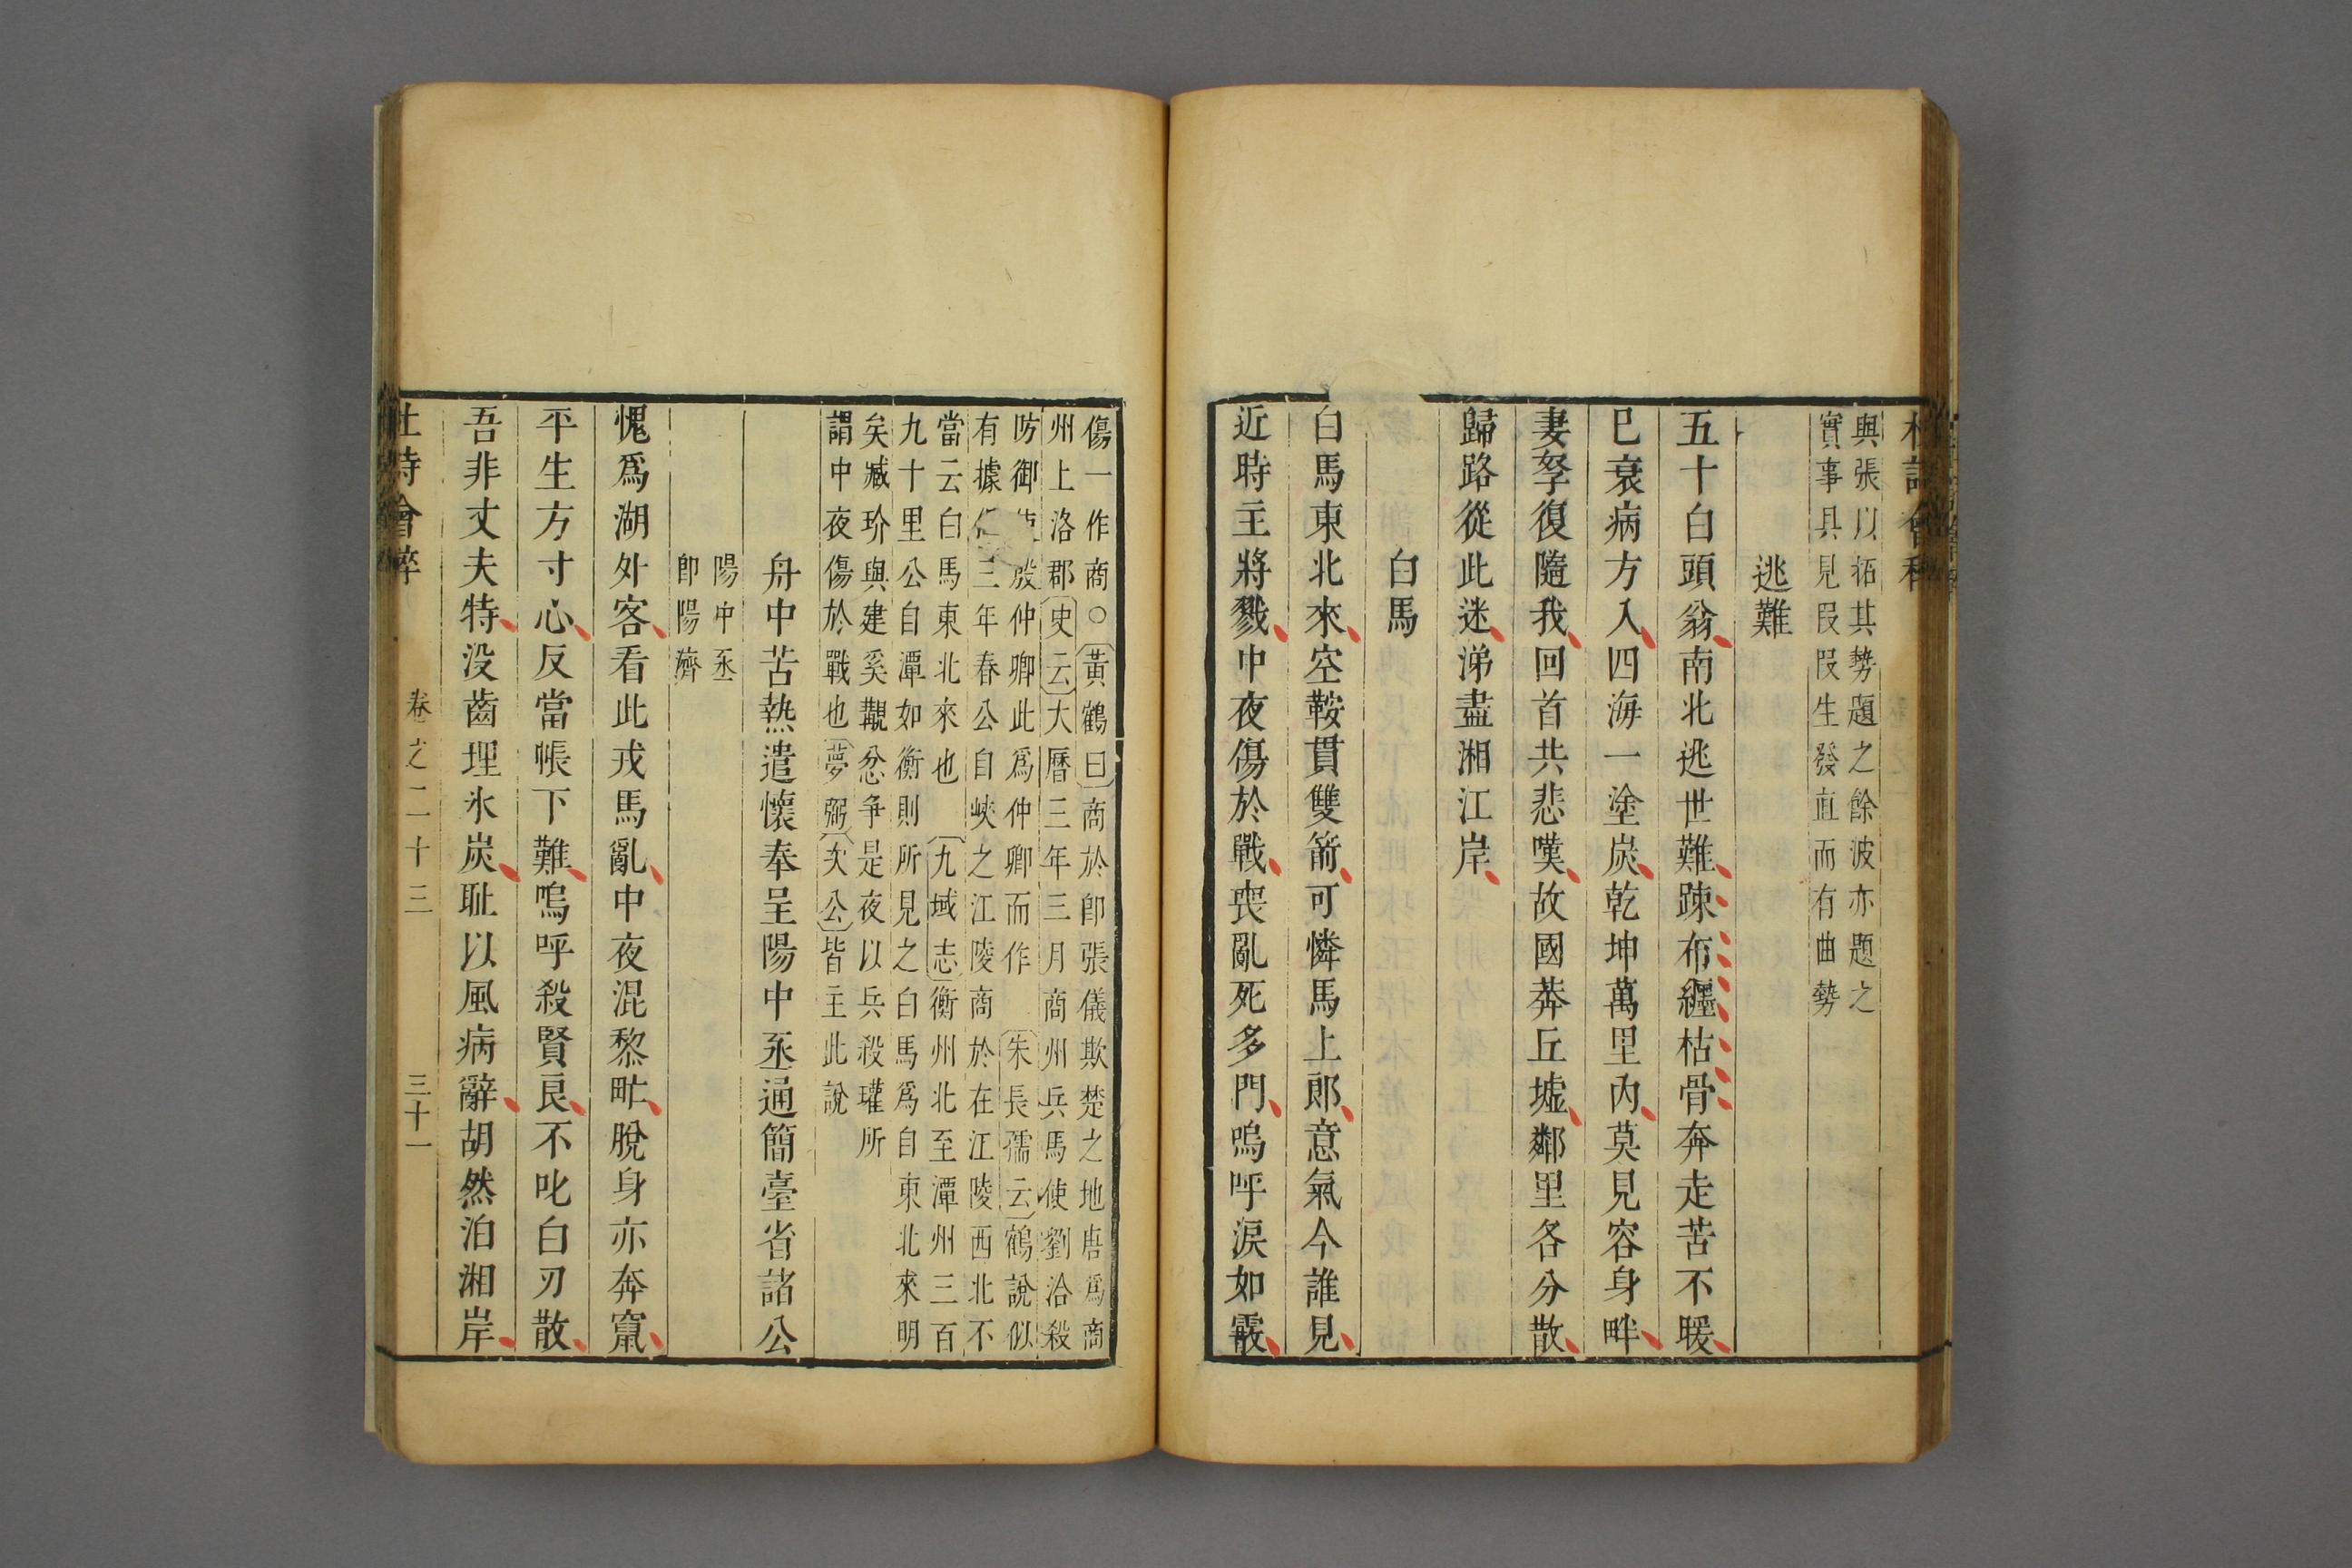 與張以拓其勢題之餘波亦題之
實事具見叚叚生發直而有曲勢
逃難
五十白頭翁南北逃世難踈布纒枯骨奔走苦不暖
巳衰病方入四海一塗炭乾坤萬里內莫見容身畔
妻孥復隨我回首共悲嘆故國莽丘墟鄰里各分散
歸路從此迷涕盡湘江岸
白馬
白馬東北來空鞍貫雙箭可憐馬上郎意氣今誰見
近時主將戮中夜傷於戰喪亂死多門嗚呼淚如霰
傷一作商○黃鶴曰商於卽張儀欺楚之地唐爲商
州上洛郡史云大曆三年三月商州兵馬使劉洽殺
防御使殷仲卿此爲仲卿而作 朱長孺云鶴說似
有據但三年春公自峽之江陵商於在江陵西北不
當云白馬東北來也 九域志衡州北至潭州三百
九十里公自潭如衡則所見之白馬爲自東北來明
矣臧玠與建奚覯忿争是夜以兵殺瓘所
謂中夜傷於戰也夢弼次公皆主此說
舟中苦熱遣懷奉呈陽中丞通簡臺省諸公
陽中丞
卽陽濟
愧爲湖外客看此戎馬亂中夜混黎甿脫身亦奔竄
平生方寸心反當帳下難嗚呼殺賢良不叱白刃散
吾非丈夫特没齒埋氷炭耻以風病辭胡然泊湘岸
杜詩會稡
卷之二十三
三十一